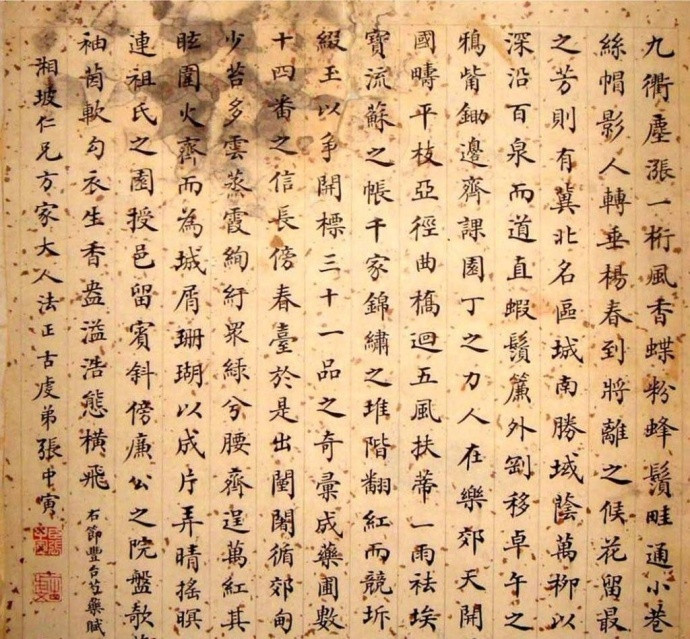 九衢塵漲一桁風香蝶粉蜂鬚畦通小巷
絲帽影人轉垂楊春到將離之候花留最
之芳則有冀北名區城南勝域蔭萬柳以
深沿百泉而道直蝦鬚簾外移卓午之
鴉觜鋤邊齊課園丁之力人在樂郊天開
國疇平枝亞徑曲橋迴五風扶蒂一雨祛埃
寶流蘇之帳千家錦繡之堆階翻紅而競坼
綴玉以爭開標三十一品之奇彙成藥圃數
十四番之信長傍春臺於是出闉闍循郊甸
少苔多雲蒸霞絢紆眾綠兮腰齊逞萬紅其
眩圍火齊而為城屑珊瑚以成片弄晴搖暝
連祖氏之園授邑留賓斜傍廉公之院盤欹
袖茵軟勾衣生香盎溢浩態橫飛
右節豐台芍藥賦
湘坡仁兄方家大人法正古虞弟張中寅